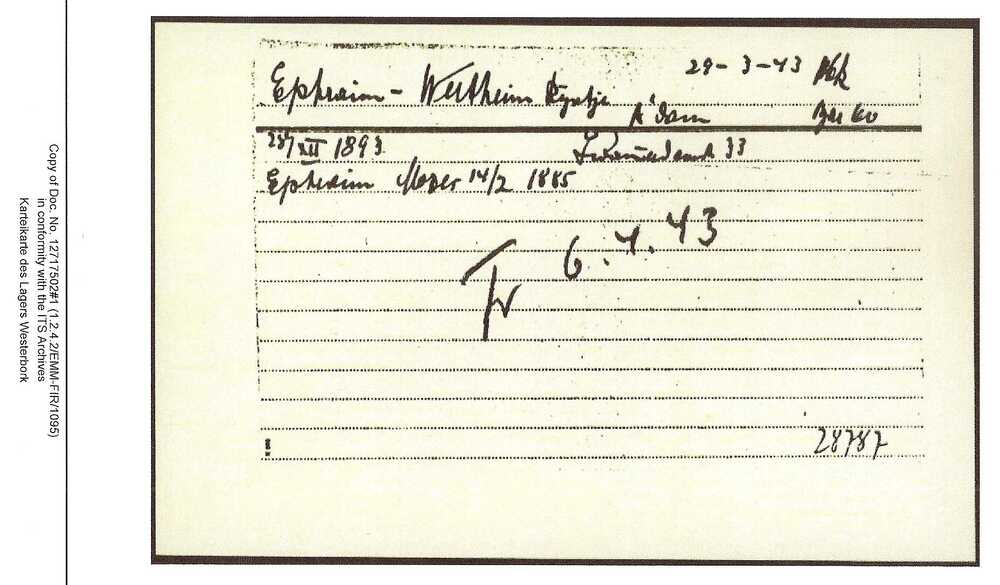 Copy of Doc. No. 12717502#1 (1.2.4.2/EMM-FIR/1095)
in conformity with the ITS Archives
Karteikarte des Lagers Westerbork
29-3-43
Ephraim - Wertheim
A'dam
28/XII 1893
33
Ephraim Mozes 14/2 1885
6.4.43
Tr
28787